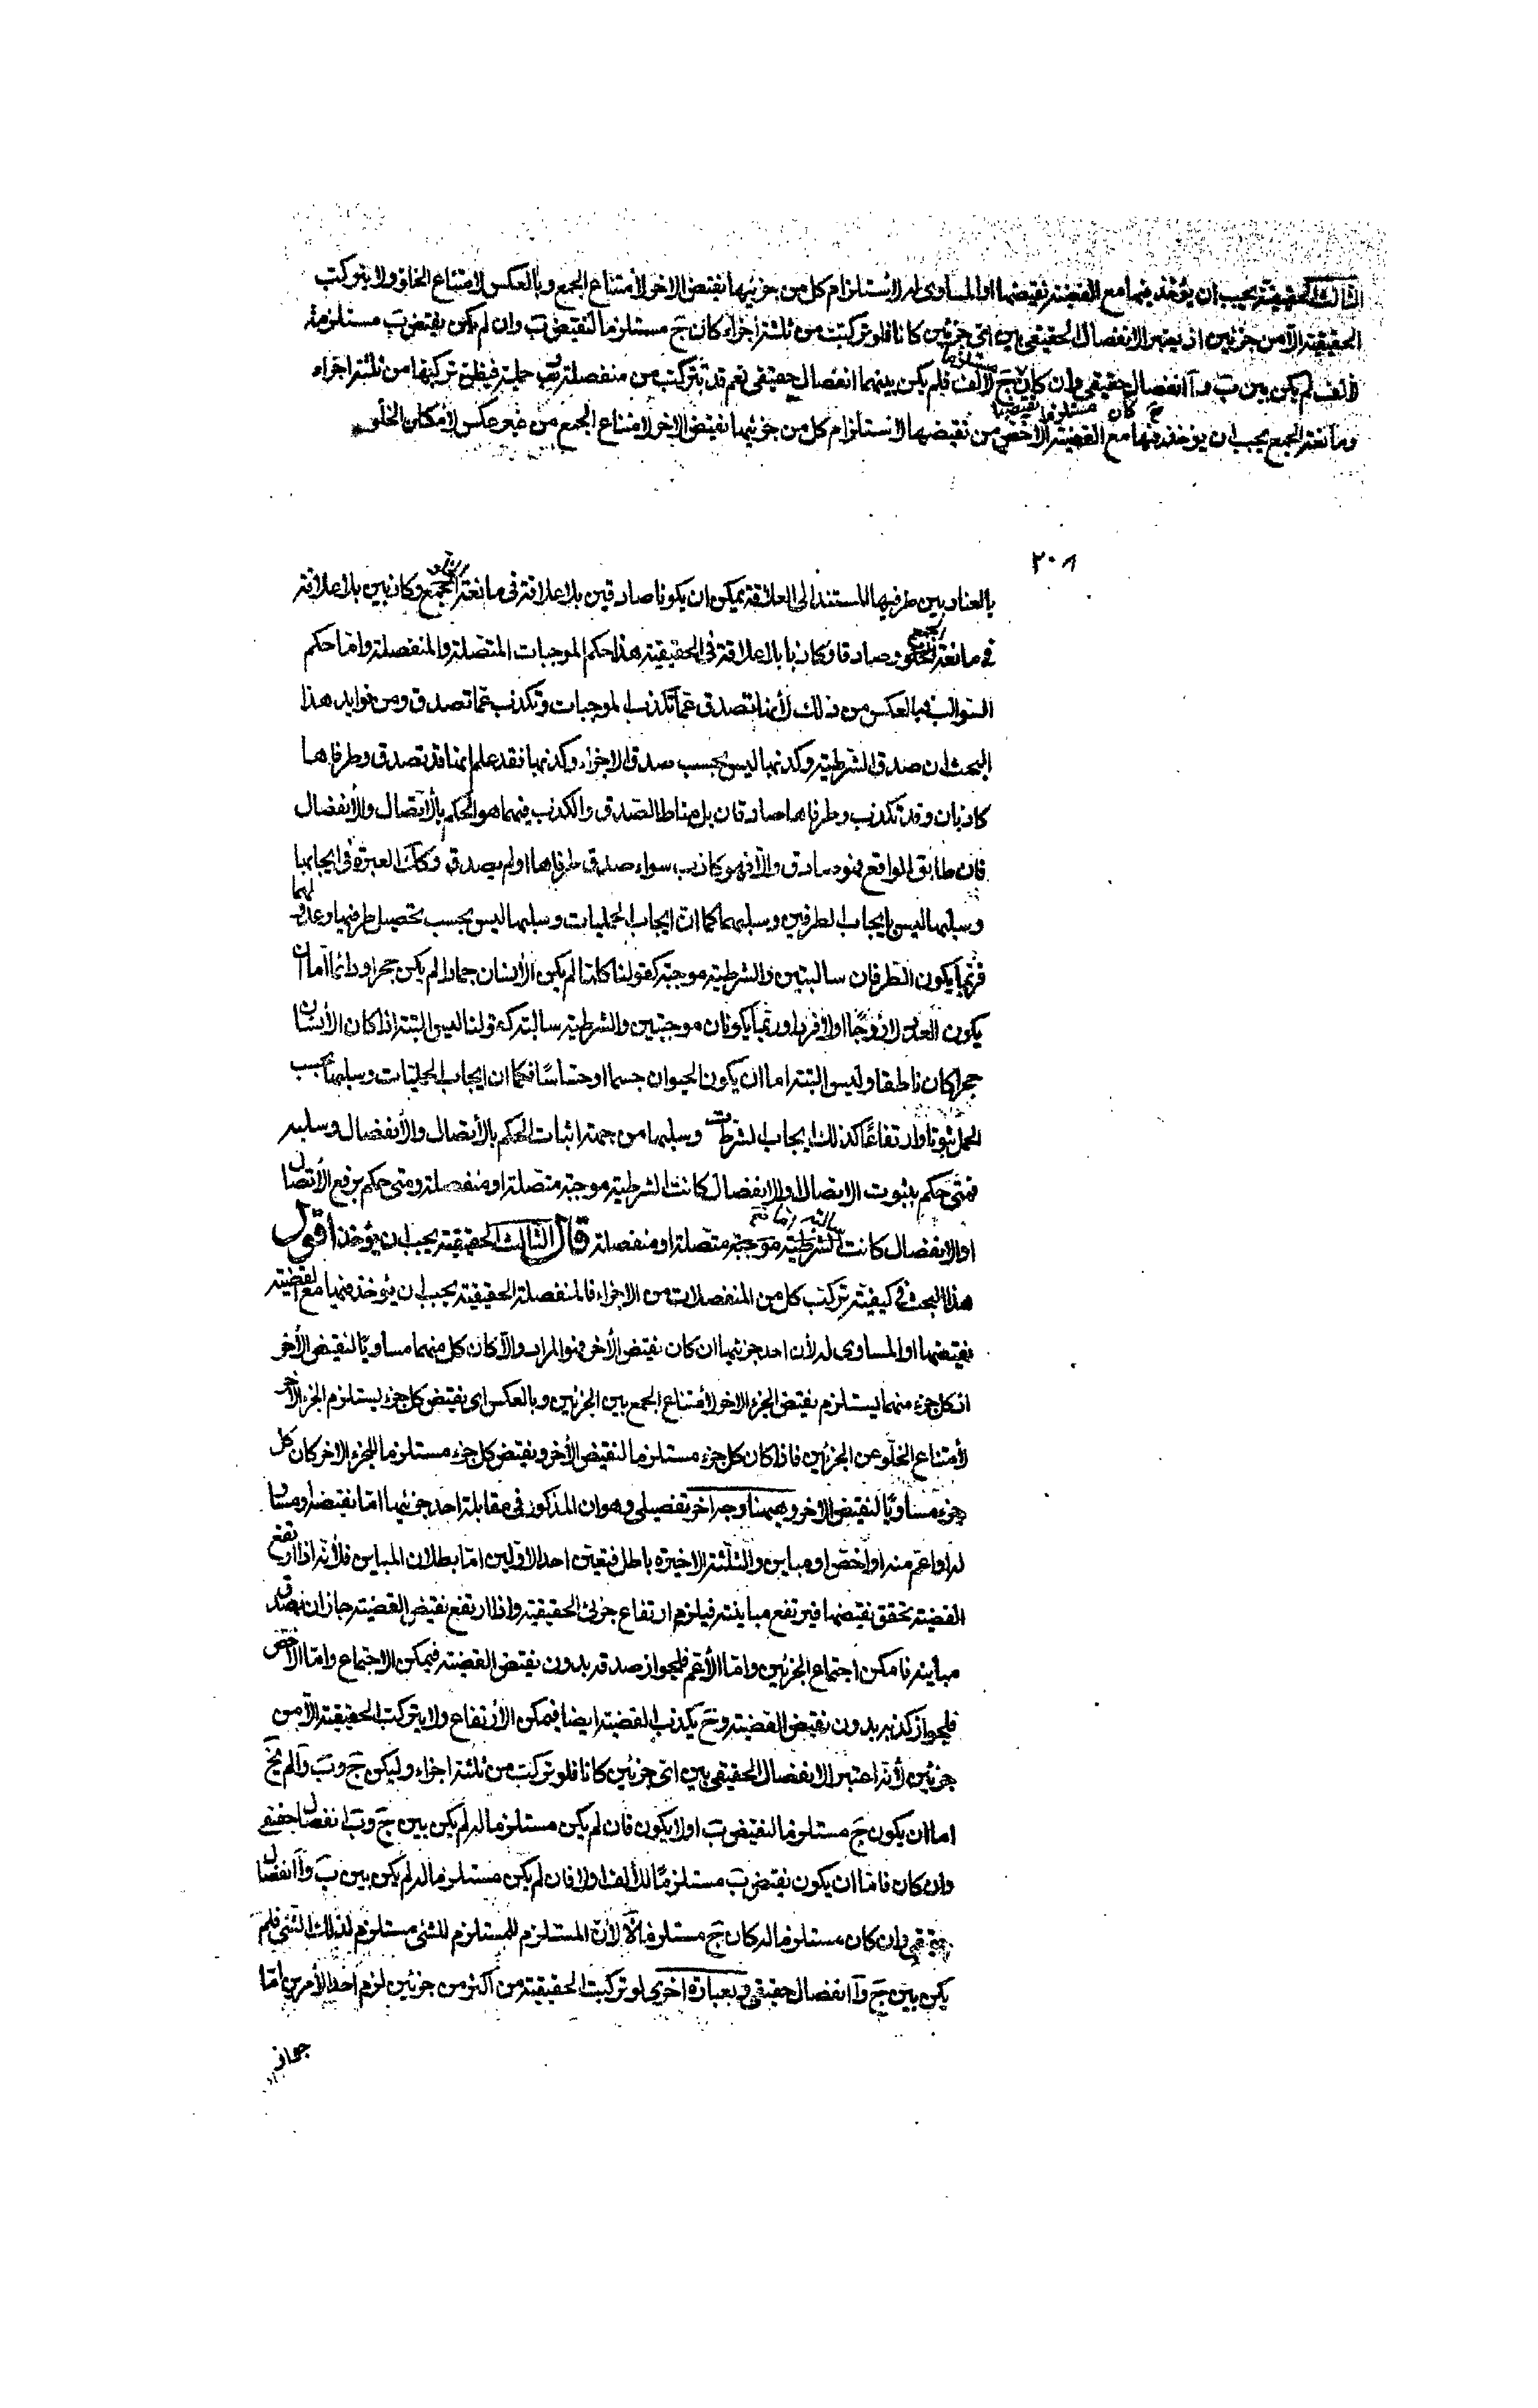 الثالث الحقيقية يجب ان يؤخذ فيها مع القضية نقيضها او المساوى له لاستلزام كل من جزئيها نقيض الاخر لامتناع الجمع وبالعكس لامتناع الخلو ولا يتركب
الحقيقية الا من جزئين اذ يعتبر الانفصال الحقيقى بين اى جزئين كانا فلو تركبت من ثلثة اجزاء كان ج مستلزما لنقيض ب وان لم يكن نقيض ب مستلزما
لالف لم يكن بين ب وا انفصال حقيقى وان كان ج لالف فلم يكن بينهما انفصال حقيقى نعم قد يتركب من منفصلة حملية فيظن تركبها من ثلثة اجزاء
ومانعة الجمع يجب ان يؤخذ فيها مع القضية الاخص من نقيضها لاستلزام كل من جزئيها نقيض الاخر لامتناع الجمع من غير عكس لامكان الخلو
٣٠٨
بالعناد بين طرفيها المستند الى العلاقة يمكن ان يكونا صادقين بلا علاقة فى مانعة الجمع وكاذبين بلا علاقة
فى مانعة الخلو وصادقا وكاذبا بلا علاقة فى الحقيقية هذا حكم الموجبات المتصلة والمنفصلة واما حكم
السوالب فبالعكس من ذلك لأنها تصدق عما تكذب الموجبات وتكذب عما تصدق ومن فوايد هذا
البحث ان صدق الشرطية وكذبها ليس بحسب صدق الاجزاء وكذبها فقد علم انها قد تصدق وطرفاها
كاذبان وقد تكذب وطرفاها صادقان بل مناط الصدق والكذب فيهما هو الحكم بالأتصال والأنفصال
فان طابق الواقع فهو صادق والا فهو كاذب سواء صدق طرفاها او لم يصدق وكذلك العبرة فى ايجابها
وسلبها ليس بايجاب الطرفين وسلبهما كما ان ايجاب الحمليات وسلبها ليس بحسب تحصيل طرفيها وعدولهما
فربما يكون الطرفان سالبتين والشرطية موجبة كقولنا كلما لم يكن الأنسان جمادا لم يكن حجرا ودائما اما ان
يكون العدد لا زوجا او لا فردا وربما يكونان موجبتين والشرطية سالبة كقولنا ليس البتة اذا كان الأنسان
حجرا كان ناطقا وليس البتة اما ان يكون الحيوان جسما او حساسا فكما ان ايجاب الحمليات وسلبها بحسب
الحمل ثبوتا وارتفاعا كذلك ايجاب الشرطيات وسلبها من جهة اثبات الحكم بالأتصال والأنفصال وسلبه
فمتى حكم بثبوت الاتصال او الانفصال كانت الشرطية موجبة متصلة او منفصلة ومتى حكم برفع الأتصال
او الانفصال كانت الشرطية موجبة متصلة او منفصلة قال الثالث الحقيقية يجب ان يؤخذ أقول
هذا البحث فى كيفية تركب كل من المنفصلات من الاجزاء فالمنفصلة الحقيقية يجب ان يؤخذ فيها مع القضية
نقيضها او المساوى له لأن احد جزئيها ان كان نقيض الأخر فهو المراد والا كان كل منهما مساويا لنقيض الأخر
اذ كل جزء منهما يستلزم نقيض الجزء الاخر لأمتناع الجمع بين الجزئين وبالعكس اى نقيض كل جزء يستلزم الجزء الاخر
لأمتناع الخلو عن الجزئين فاذا كان كل جزء مستلزما لنقيض الأخر ونقيض كل جزء مستلزما للجزء الاخر كان كل
جزء مساويا لنقيض الاخر وههنا وجه اخر تفصيلى وهو ان المذكور فى مقابلة احد جزئيها اما نقيضه او مساو
له او اعم منه او اخص او مباين والثلثة الاخيرة باطل فتعين احد الاولين اما بطلان المباين فلأنه اذا ارتفع
القضية تحقق نقيضها فيرتفع مباينه فيلزم ارتفاع جزئى الحقيقية واذا ارتفع نقيض القضية جاز ان يصدق
مباينه فامكن اجتماع الجزئين واما الأعم فلجواز صدقه بدون نقيض القضية فيمكن الاجتماع واما الاخص
فلجواز كذبه بدون نقيض القضية وح يكذب القضية ايضا فيمكن الأرتفاع ولا يتركب الحقيقية الا من
جزئين لأنه اعتبر الانفصال الحقيقى بين اى جزئين كانا فلو تركبت من ثلثة اجزاء وليكن ج وب وا لم يخ
اما ان يكون ج مستلزما لنقيض ب او لا يكون فان لم يكن مستلزما له لم يكن بين ج وب انفصال حقيقى
وان كان فاما ان يكون نقيض ب مستلزما لالف او لا فان لم يكن مستلزما له لم يكن بين ب وا انفصال
حقيقى وان كان مستلزما له كان ج مستلزما لآ لأن المستلزم للمستلزم للشئ مستلزم لذلك الشئ فلم
يكن بين ج وا انفصال حقيقى وبعبارة اخرى لو تركبت الحقيقية من اكثر من جزئين لزم احد الأمرين اما
جواز